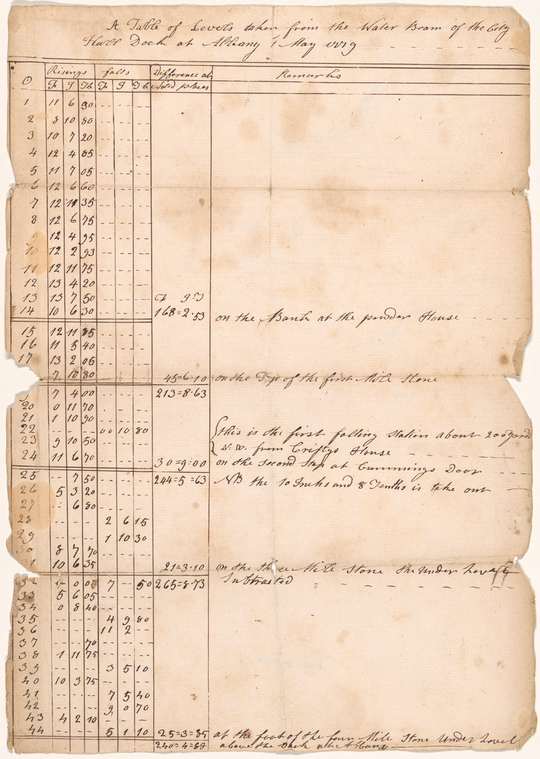 A Table of Levels taken from the Water Beam of the City
Hall Dock at Albany 1 May
Risings Falls Difference at Remarks
1 11 6 80
2 8 10 80
3 10 7 20
4 12 4 85
5 11 7 05
6 12 6 60
7 12 11 35
8 12 6 75
12 4 95
12 2 93
11 12 11 75
12 13 4 20
13 13 7 50
14 10 6 30 168=2-53 on the Bank at the powder House
15 12 11
16 11 5 40
17 13 2 05
7 10 80 45=6-10 on the Top of the first Mile Stone
7 4 00 213=8-63
20 0 11 70
21 1 10 90
22 00 10 80 This is the first falling Station about 200 yards
23 9 10 50 from House
24 11 6 70 30=9:00 on the second Step at Cummings Door
25 7 50 244=5=63 NB the 10 Inchs and 8 Tenths is take out
26 5 3 20
27 6 80
28 2 6 15
29 1 10 30
8 7 70
10 6 35 21=3-10 on the three Mile Stone the under Level
0 00 7 50 265=8-73 Subtracted
33 5 6 05
34 0 8 40
35 4 9 80
36 11 2
37 70
38 1 11 75
39 3 5 10
40 10 3 75
41 7 5 40
42 9 0 70
43 4 2 10
44 5 1 10 25=3=85 at the foot of the four Mile Stone Under Level
240=4=88 above the Dock